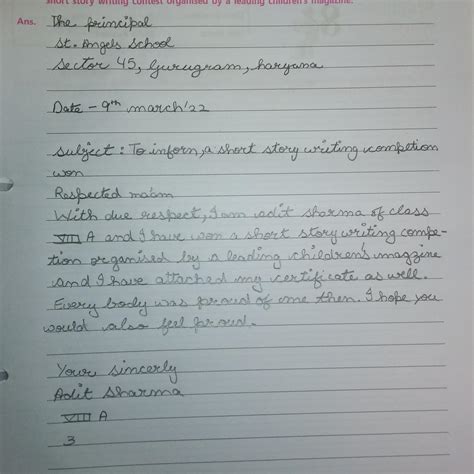 short story writing contest organised by a leading children's magazine.
Ans. The principal
St. Angels School
Sector 45, Gurugram, haryana
Date - 9th march'22
Subject : To inform, a short story writing competion
won
Respected ma'am
With due respect, I am adit sharma of class
VIII A and I have won a short story writing compe-
tion organised by a leading children's magzine
and I have attached my certificate as well.
Every body was proud of me then. I hope you
would also feel proud.
Your sincerly
Adit Sharma
VIII A
3